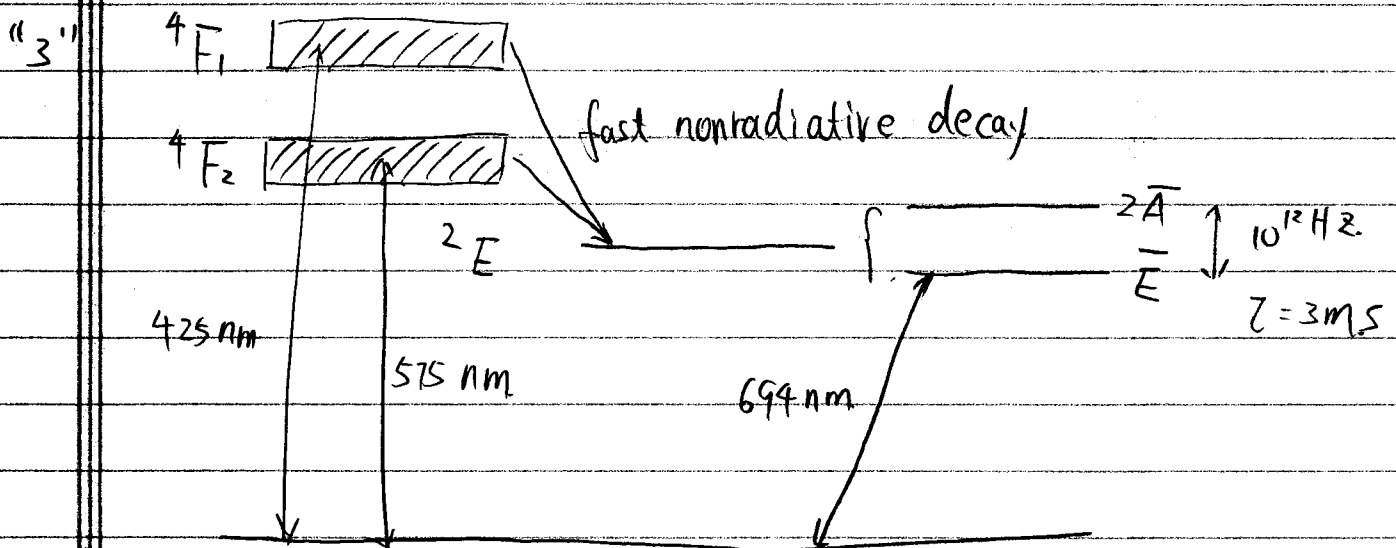 "3"
⁴F̅₁
fast nonradiative decay
⁴F̅₂
2A̅
10¹² Hz.
²E
E̅
τ = 3ms
425 nm
575 nm
694 nm